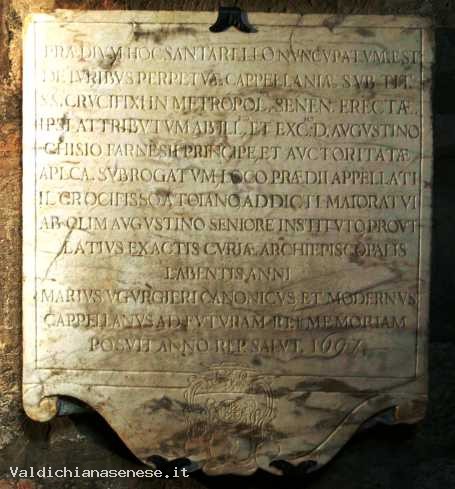 PRÆDIVM HOC SANTARELLO NVNCVPATVM EST
DE IVRIBVS PERPETVÆ CAPPELLANIÆ SVB TIT.
S.S. CRVCIFIXI IN METROPOL. SENEN. ERECTÆ
IPSI ATTRIBVTVM AB ILL. ET EXC. D. AVGVSTINO
CHISIO FARNESII PRINCIPE, ET AVCTORITATÆ
APLCA. SVBROGATVM LOCO PRÆDII APPELLATI
IL CROCIFISSO A TOIANO ADDICTI MAIORATVI
AB OLIM AVGVSTINO SENIORE INSTITVTO PROVT
LATIVS EX ACTIS CVRIÆ ARCHIEPISCOPALIS
LABENTIS ANNI
MARIVS VGVRGIERI CANONICVS ET MODERNVS
CAPPELLANVS AD FVTVRAM REI MEMORIAM
POSVIT ANNO REP. SALVT. 1697
Valdichianasenese.it